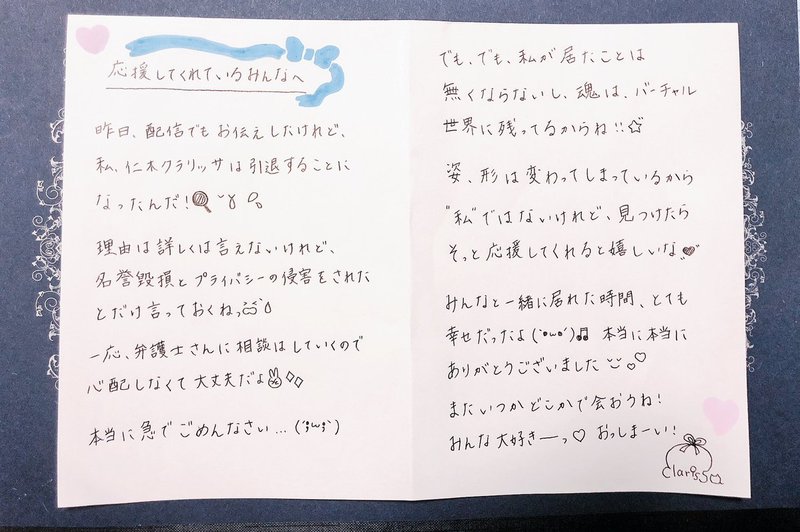 応援してくれているみんなへ
昨日、配信でもお伝えしたけれど、
私、仁木クラリッサは引退することに
なったんだ!
理由は詳しくは言えないけれど、
名誉毀損とプライバシーの侵害をされた
とだけ言っておくねっ
一応、弁護士さんに相談はしていくので
心配しなくて大丈夫だよ
本当に急でごめんなさい…(´;ω;`)
でも、でも、私が居たことは
無くならないし、魂は、バーチャル
世界に残ってるからね!!☆
姿、形は変わってしまっているから
"私"ではないけれど、見つけたら
そっと応援してくれると嬉しいな♥
みんなと一緒に居れた時間、とても
幸せだったよ(´•ω•`)♫ 本当に本当に
ありがとうございました♡
またいつかどこかで会おうね!
みんな大好きーっ♡ おっしまーい!
Clarissa